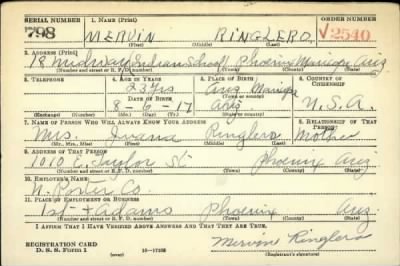 SERIAL NUMBER 1. NAME (Print) ORDER NUMBER
798 MERVIN RINGLERO V2540
(First) (Middle) (Last)
2. ADDRESS (Print)
18 Midway Indian School Phoenix Maricopa Ariz
(Number and street or R. F. D. number) (Town) (County) (State)
3. TELEPHONE 4. AGE IN YEARS 5. PLACE OF BIRTH 6. COUNTRY OF CITIZENSHIP
23 Yrs Ariz Maricopa
DATE OF BIRTH
8-6-17 Ariz U.S.A.
(Exchange) (Number) (Mo.) (Day) (Yr.) (State or country)
7. NAME OF PERSON WHO WILL ALWAYS KNOW YOUR ADDRESS 8. RELATIONSHIP OF THAT PERSON
Mrs. Ringlero Mother
(Mr., Mrs., Miss) (First) (Middle) (Last)
9. ADDRESS OF THAT PERSON
1010 E. Taylor St Phoenix Ariz
(Number and street or R. F. D. number) (Town) (County) (State)
10. EMPLOYER'S NAME
N. Porter Co.
11. PLACE OF EMPLOYMENT OR BUSINESS
1st + Adams Phoenix Ariz
(Number and street or R. F. D. number) (Town) (County) (State)
I AFFIRM THAT I HAVE VERIFIED ABOVE ANSWERS AND THAT THEY ARE TRUE.
REGISTRATION CARD
D. S. S. Form 1 16—17105 Mervin Ringlero
(Registrant's signature)